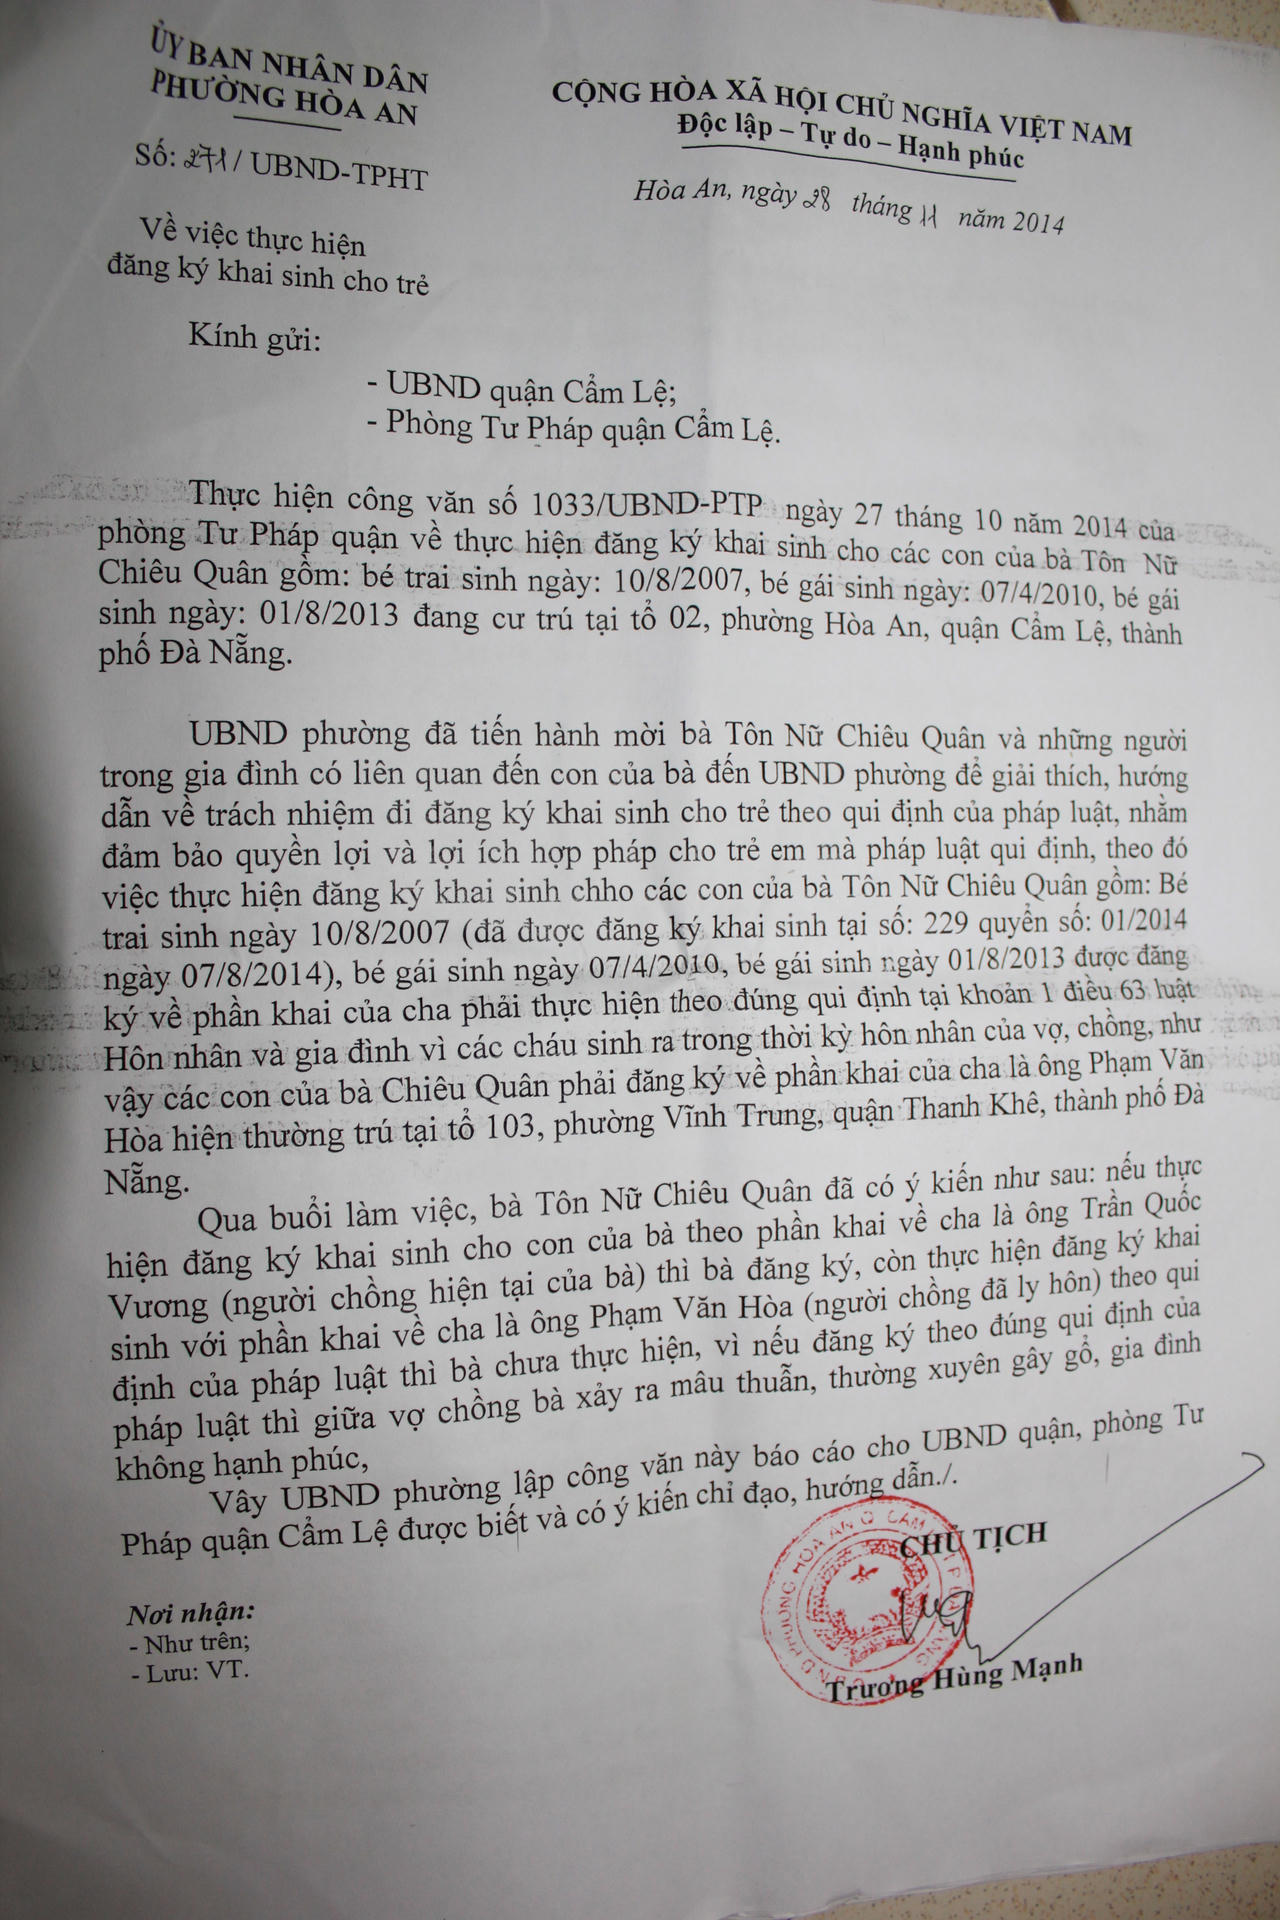 ỦY BAN NHÂN DÂN
PHƯỜNG HÒA AN
CỘNG HÒA XÃ HỘI CHỦ NGHĨA VIỆT NAM
Độc lập – Tự do – Hạnh phúc
Số: 271/ UBND-TPHT
Hòa An, ngày 28 tháng 11 năm 2014
Về việc thực hiện
đăng ký khai sinh cho trẻ
Kính gửi:
- UBND quận Cẩm Lệ;
- Phòng Tư Pháp quận Cẩm Lệ.
Thực hiện công văn số 1033/UBND-PTP ngày 27 tháng 10 năm 2014 của
phòng Tư Pháp quận về thực hiện đăng ký khai sinh cho các con của bà Tôn Nữ
Chiêu Quân gồm: bé trai sinh ngày: 10/8/2007, bé gái sinh ngày: 07/4/2010, bé gái
sinh ngày: 01/8/2013 đang cư trú tại tổ 02, phường Hòa An, quận Cẩm Lệ, thành
phố Đà Nẵng.
UBND phường đã tiến hành mời bà Tôn Nữ Chiêu Quân và những người
trong gia đình có liên quan đến con của bà đến UBND phường để giải thích, hướng
dẫn về trách nhiệm đi đăng ký khai sinh cho trẻ theo qui định của pháp luật, nhằm
đảm bảo quyền lợi và lợi ích hợp pháp cho trẻ em mà pháp luật qui định, theo đó
việc thực hiện đăng ký khai sinh chho các con của bà Tôn Nữ Chiêu Quân gồm: Bé
trai sinh ngày 10/8/2007 (đã được đăng ký khai sinh tại số: 229 quyển số: 01/2014
ngày 07/8/2014), bé gái sinh ngày 07/4/2010, bé gái sinh ngày 01/8/2013 được đăng
ký về phần khai của cha phải thực hiện theo đúng qui định tại khoản 1 điều 63 luật
Hôn nhân và gia đình vì các cháu sinh ra trong thời kỳ hôn nhân của vợ, chồng, như
vậy các con của bà Chiêu Quân phải đăng ký về phần khai của cha là ông Phạm Văn
Hòa hiện thường trú tại tổ 103, phường Vĩnh Trung, quận Thanh Khê, thành phố Đà
Nẵng.
Qua buổi làm việc, bà Tôn Nữ Chiêu Quân đã có ý kiến như sau: nếu thực
hiện đăng ký khai sinh cho con của bà theo phần khai về cha là ông Trần Quốc
Vương (người chồng hiện tại của bà) thì bà đăng ký, còn thực hiện đăng ký khai
sinh với phần khai về cha là ông Phạm Văn Hòa (người chồng đã ly hôn) theo qui
định của pháp luật thì bà chưa thực hiện, vì nếu đăng ký theo đúng qui định của
pháp luật thì giữa vợ chồng bà xảy ra mâu thuẫn, thường xuyên gây gổ, gia đình
không hạnh phúc,
Vây UBND phường lập công văn này báo cáo cho UBND quận, phòng Tư
Pháp quận Cẩm Lệ được biết và có ý kiến chỉ đạo, hướng dẫn./.
CHỦ TỊCH
Nơi nhận:
- Như trên;
- Lưu: VT.
Trương Hùng Mạnh